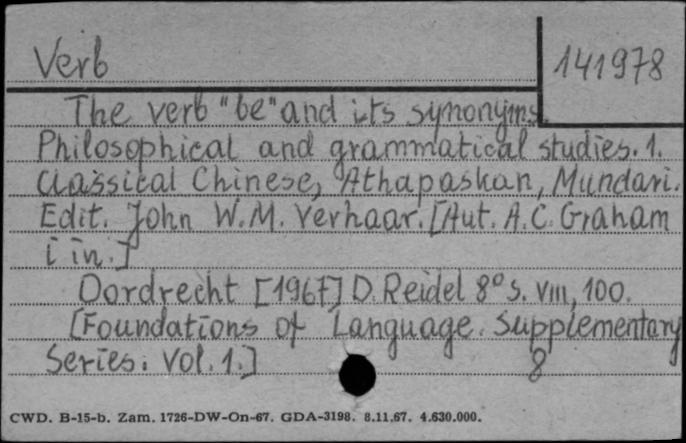 Verb
141978
The verb "be" and its synonyms.
Philosophical and grammatical studies. 1.
Classical Chinese, Athapaskan, Mundari.
Edit. John W.M. Verhaar. [Aut. A.C. Graham
i in.]
Dordrecht [1967] D. Reidel 8° s. VIII, 100.
[Foundations of Language. Supplementary
Series. Vol. 1.]
8
CWD. B-15-b. Zam. 1726-DW-On-67. GDA-3198. 8.11.67. 4.630.000.